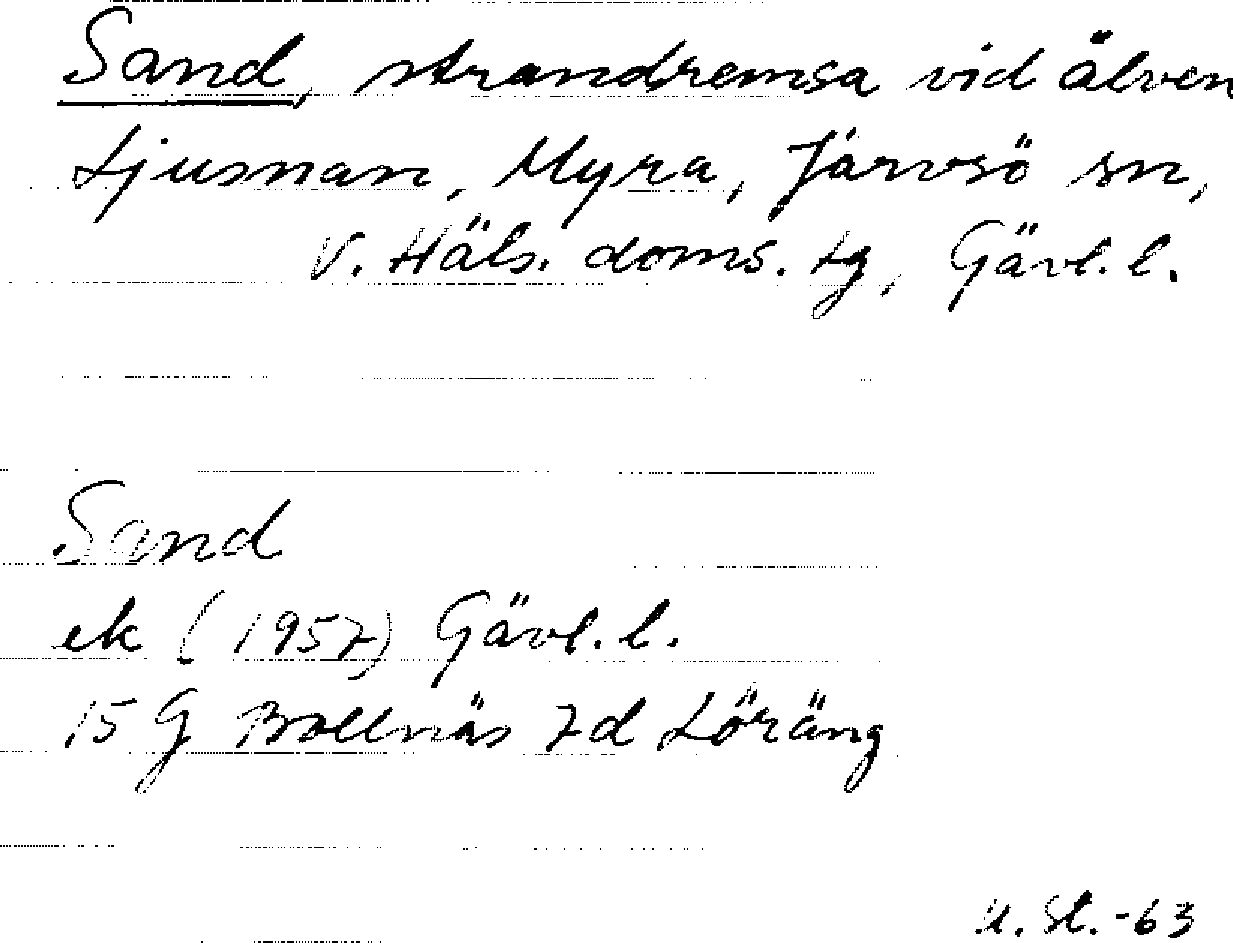 Sand, strandremsa vid älven
Ljusnan, Myra, Järvsö sn,
V. Häls. doms. tg, Gävl. l.
Sand
ek (1957) Gävl. l.
15 G Bollnäs 7d Löräng
U. St. -63